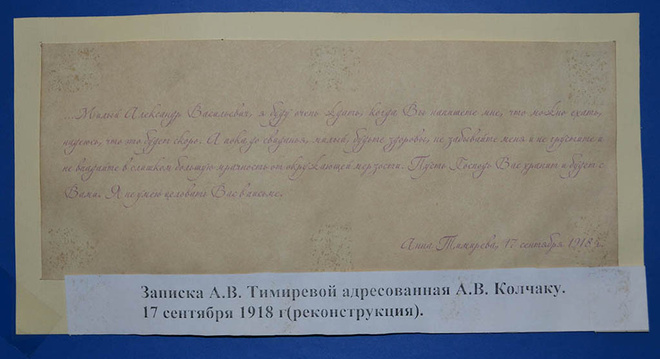 ...Милый Александр Васильевич, я буду очень ждать, когда Вы напишете мне, что можно ехать,
надеюсь, что это будет скоро. А пока до свиданья, милый, будьте здоровы, не забывайте меня и не грустите и
не впадайте в слишком большую мрачность от окружающей мерзости. Пусть Господь Вас хранит и будет с
Вами. Я не умею целовать Вас в письме.
Анна Тимирева, 17 сентября 1918 г.
Записка А.В. Тимиревой адресованная А.В. Колчаку.
17 сентября 1918 г(реконструкция).